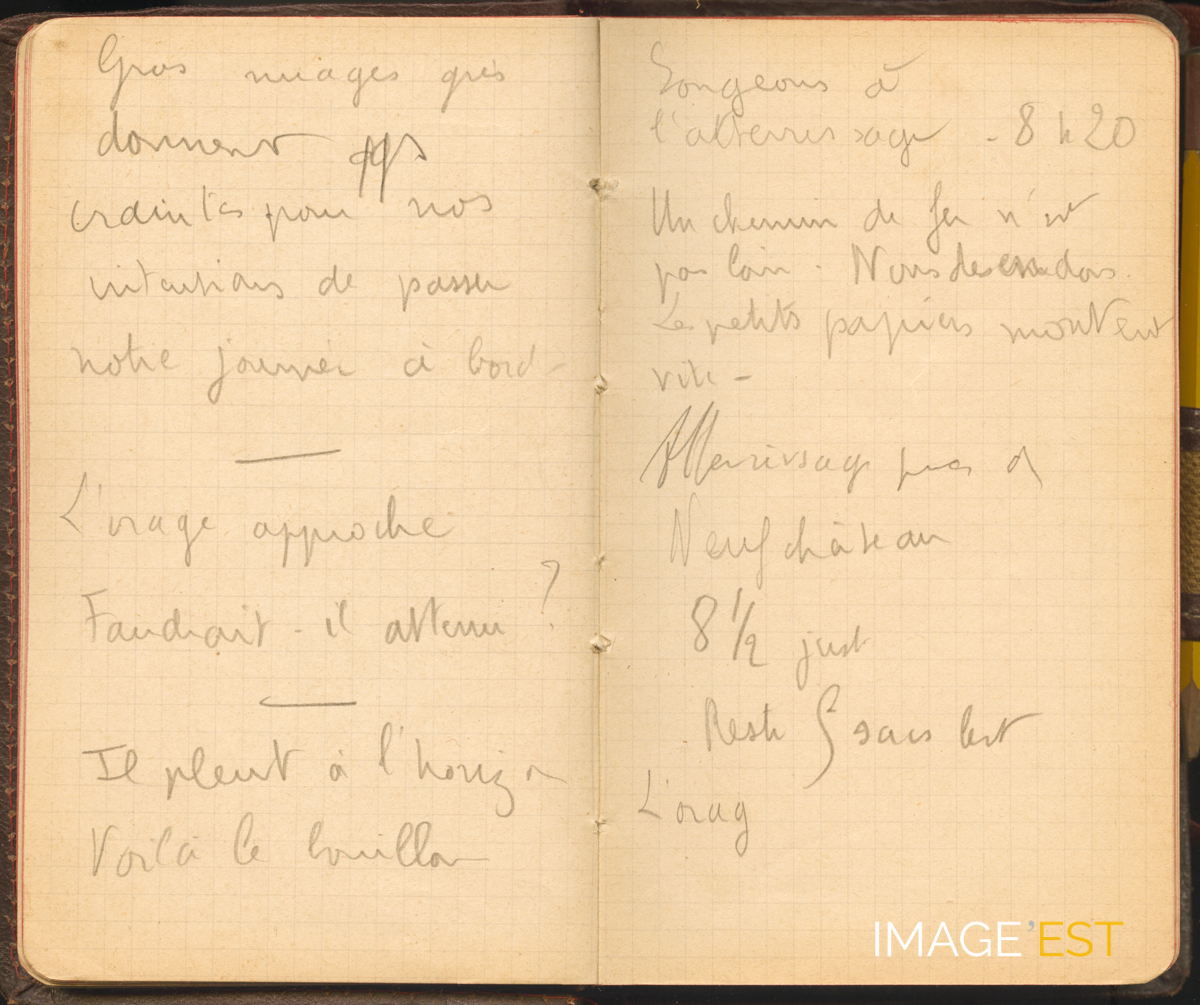 Gros nuages gris
donnent qqs
craintes pour nos
intentions de passer
notre journée à bord -
L'orage approche
Faudrait-il atterrir ?
Il pleut à l'horizon
Voilà le bouillon
Songeons à
l'atterrissage - 8 h 20
Un chemin de fer n'est
pas loin. Nous descendons.
Les petits papiers montent
vite -
Atterrissage près de
Neufchâteau
8 1/2 just
Reste 5 sacs lest
L'orag
IMAGE'EST